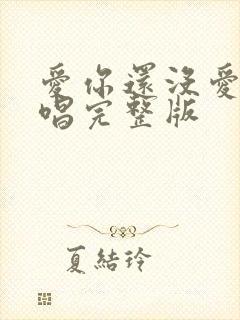 愛你還沒愛
唱完整版
夏結玲